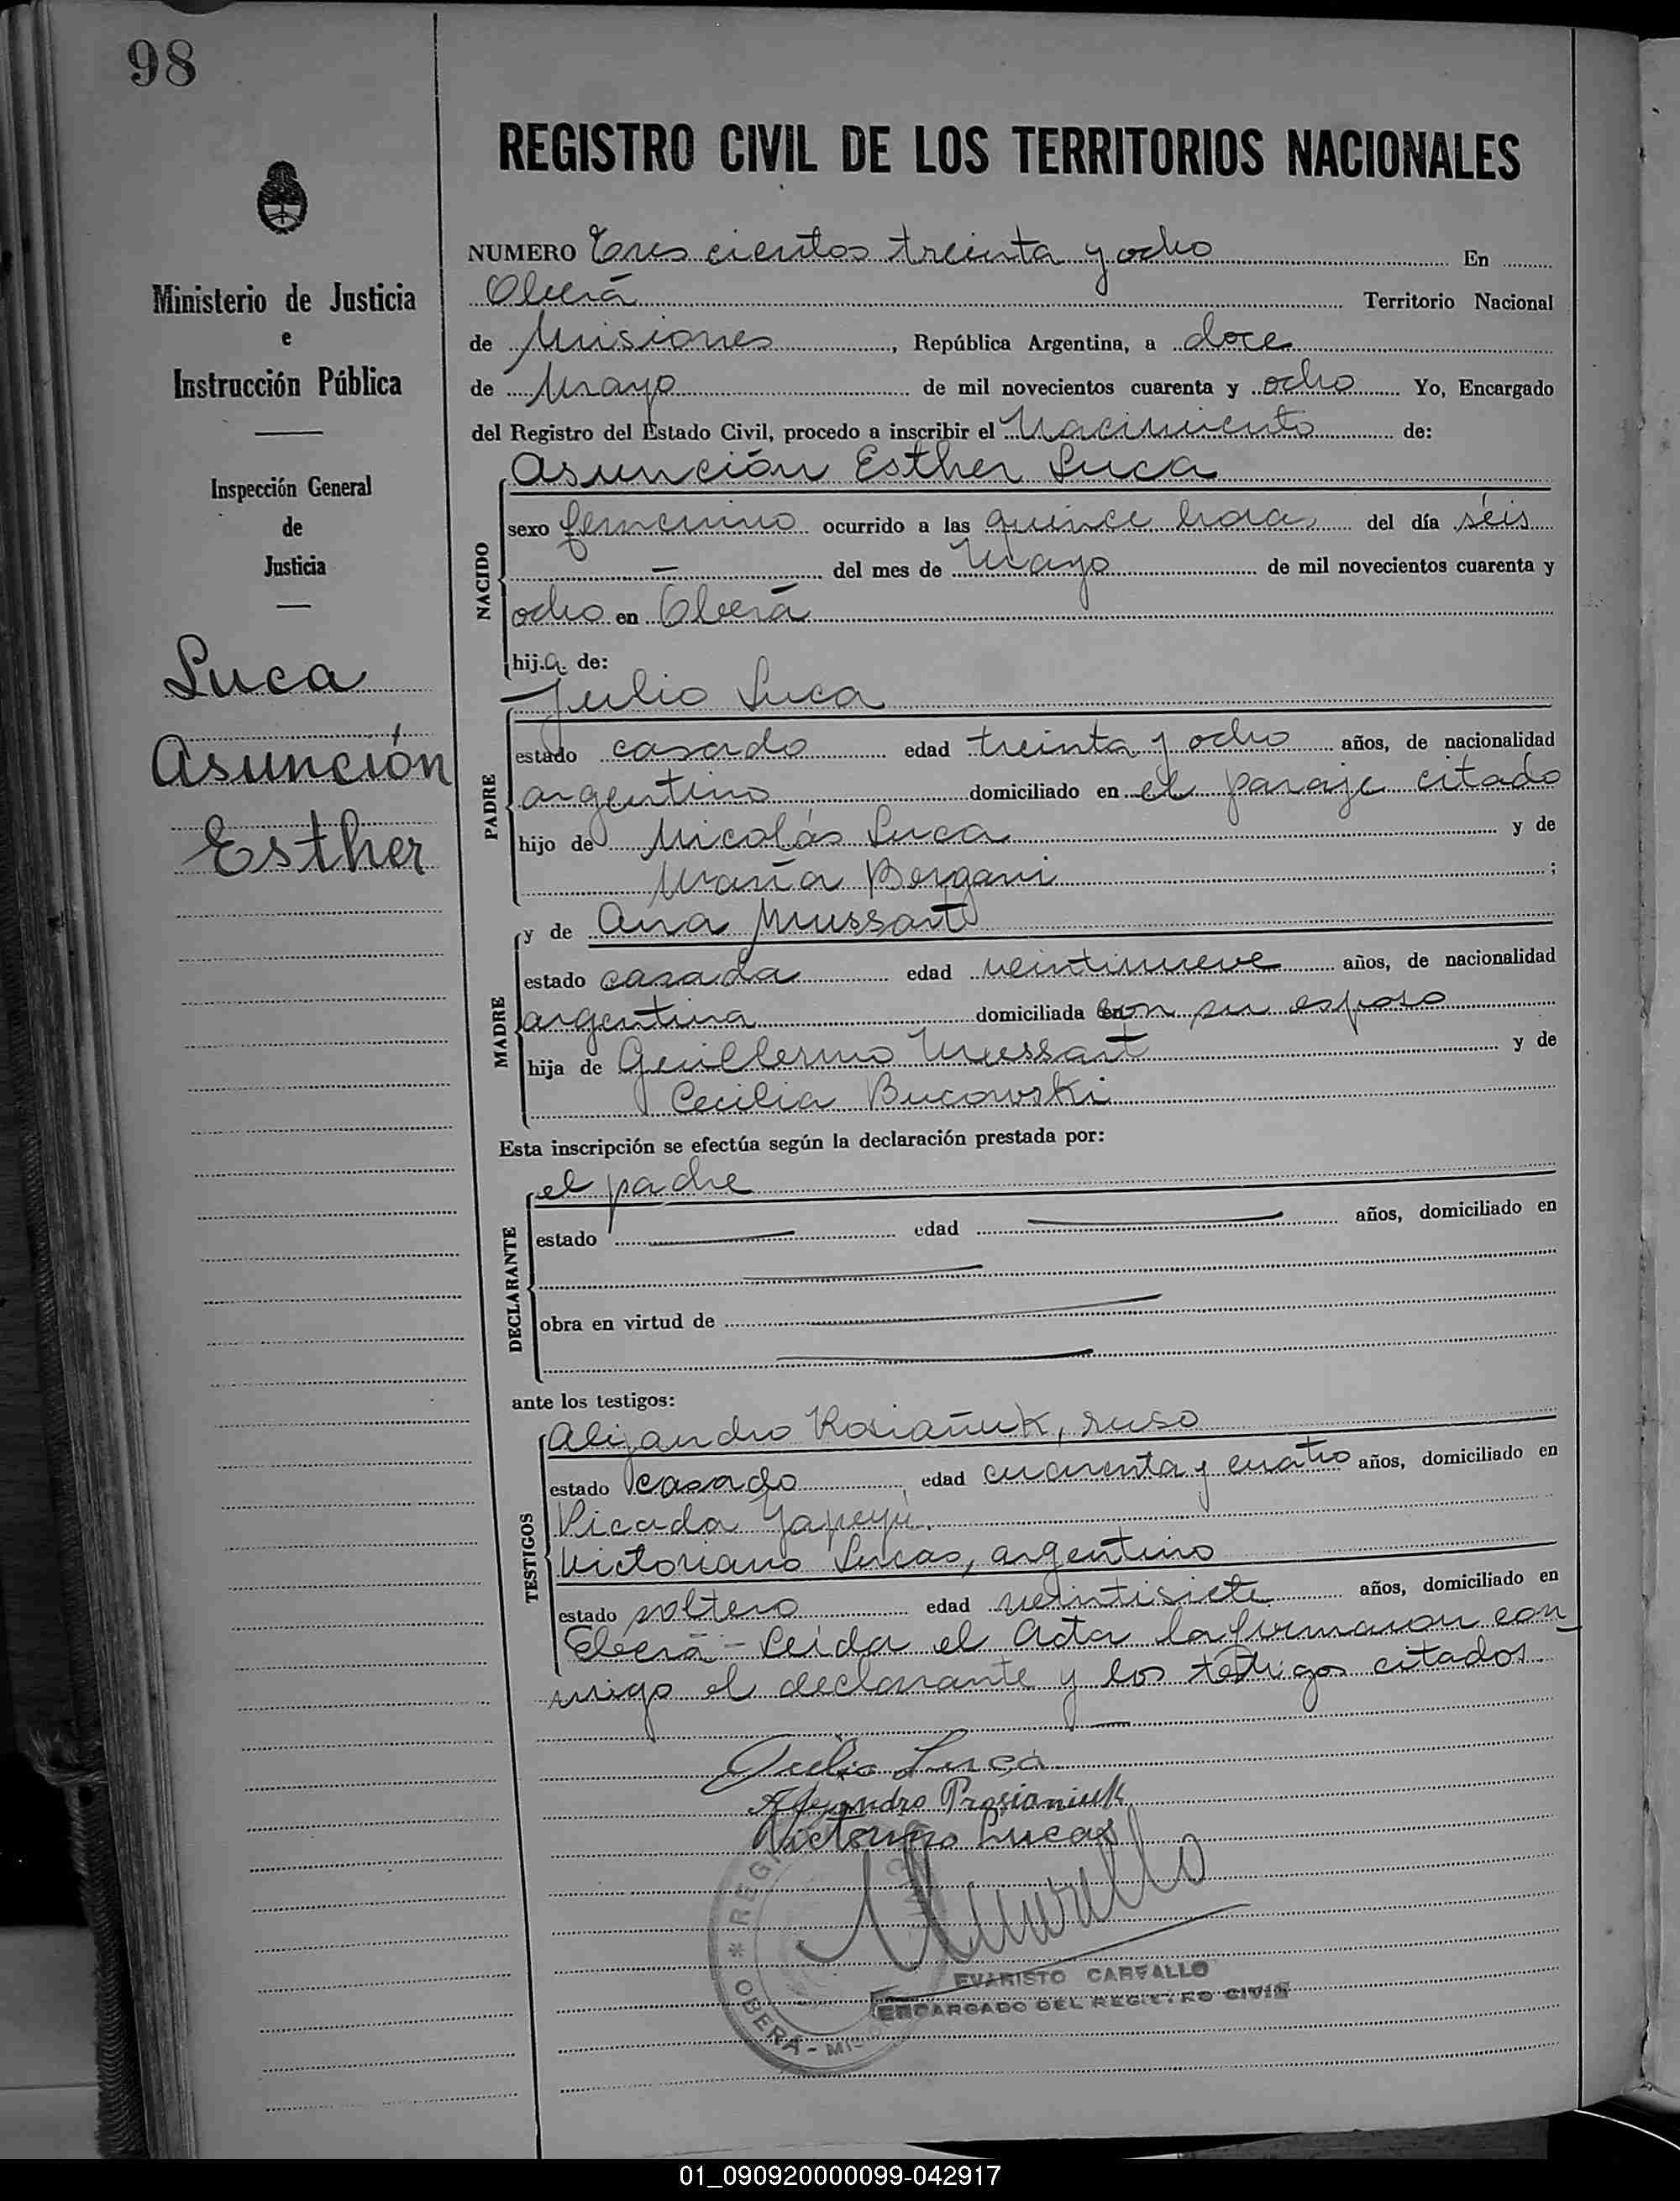 98
Ministerio de Justicia
e
Instrucción Pública
Inspección General
de
Justicia
Luca
Asunción
Esther
REGISTRO CIVIL DE LOS TERRITORIOS NACIONALES
NUMERO Tres cientos treinta y ocho En
Oberá Territorio Nacional
de Misiones, República Argentina, a doce
de Mayo de mil novecientos cuarenta y ocho Yo, Encargado
del Registro del Estado Civil, procedo a inscribir el Nacimiento de:
Asunción Esther Luca
NACIDO
sexo femenino ocurrido a las quince horas del día séis
— del mes de Mayo de mil novecientos cuarenta y
ocho en Oberá
hija de:
Julio Luca
PADRE
estado casado edad treinta y ocho años, de nacionalidad
argentino domiciliado en el paraje citado
hijo de Nicolás Luca y de
María Bergani;
y de Ana Mussart
MADRE
estado casada edad veintinueve años, de nacionalidad
argentina domiciliada con su esposo
hija de Guillermo Mussart y de
Cecilia Bucowski
Esta inscripción se efectúa según la declaración prestada por:
el padre
DECLARANTE
estado edad años, domiciliado en
obra en virtud de
ante los testigos:
TESTIGOS
Alejandro, ruso
estado casado edad cuarenta y cuatro años, domiciliado en
Picada Yapeyú.
Victoriano Lucas, argentino
estado soltero edad veintisiete años, domiciliado en
Oberá - Leída el Acta la firmaron con-
migo el declarante y los testigos citados.
Julio Luca
Alejandro Prosianiuk
Victorino Lucas
EVARISTO CARVALLO
ENCARGADO DEL REGISTRO CIVIL
OBERÁ - MIS
01_090920000099-042917